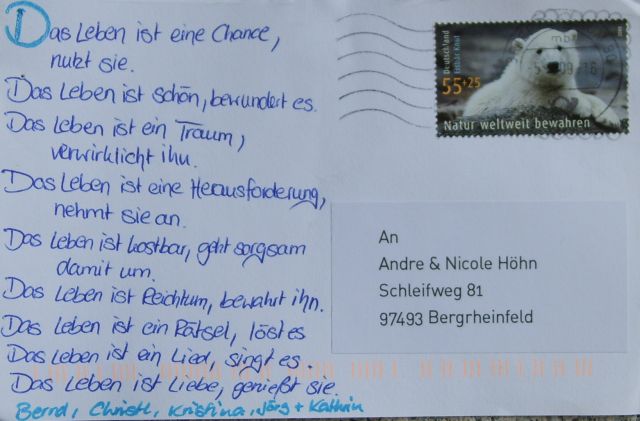 Das Leben ist eine Chance,
nutzt sie.
Das Leben ist schön, bewundert es.
Das Leben ist ein Traum,
verwirklicht ihn.
Das Leben ist eine Herausforderung,
nehmt sie an.
Das Leben ist kostbar, geht sorgsam
damit um.
Das Leben ist Reichtum, bewahrt ihn.
Das Leben ist ein Rätsel, löst es
Das Leben ist ein Lied, singt es.
Das Leben ist Liebe, genießt sie.
Bernd, Christl, Kristina, Jörg + Kathrin
Deutschland
Eisbär Knut
55+25
Natur weltweit bewahren
An
Andre & Nicole Höhn
Schleifweg 81
97493 Bergrheinfeld